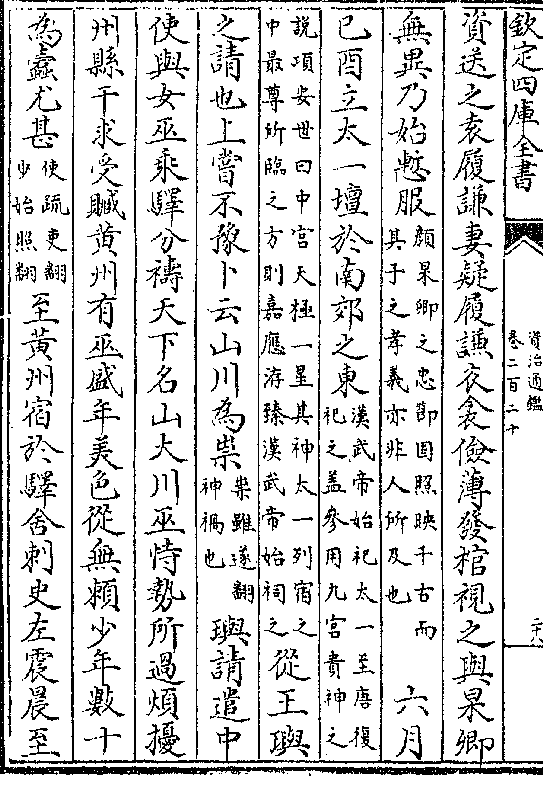 欽定四庫全書
資治通鑑
卷二百二十
二六
資送之袁履謙妻疑履謙衣衾儉薄發棺視之與杲卿
無異乃始慙服顔杲卿之忠節固照映千古而
其子之孝義亦非人所及也
六月
己酉立太一壇於南郊之東漢武帝始祀太一至唐復
祀之蓋參用九宫貴神之
說項安世曰中宫天極一星其神太一列宿之
中最尊所臨之方則嘉應洊臻漢武帝始祠之
從王璵
之請也上嘗不豫卜云山川為祟祟雖遂翻
神禍也
璵請遣中
使與女巫乘驛分禱天下名山大川巫恃勢所過煩擾
州縣干求受贓黄州有巫盛年美色從無賴少年數十
為蠧尤甚使疏吏翻
少始照翻
至黄州宿於驛舍刺史左震晨至